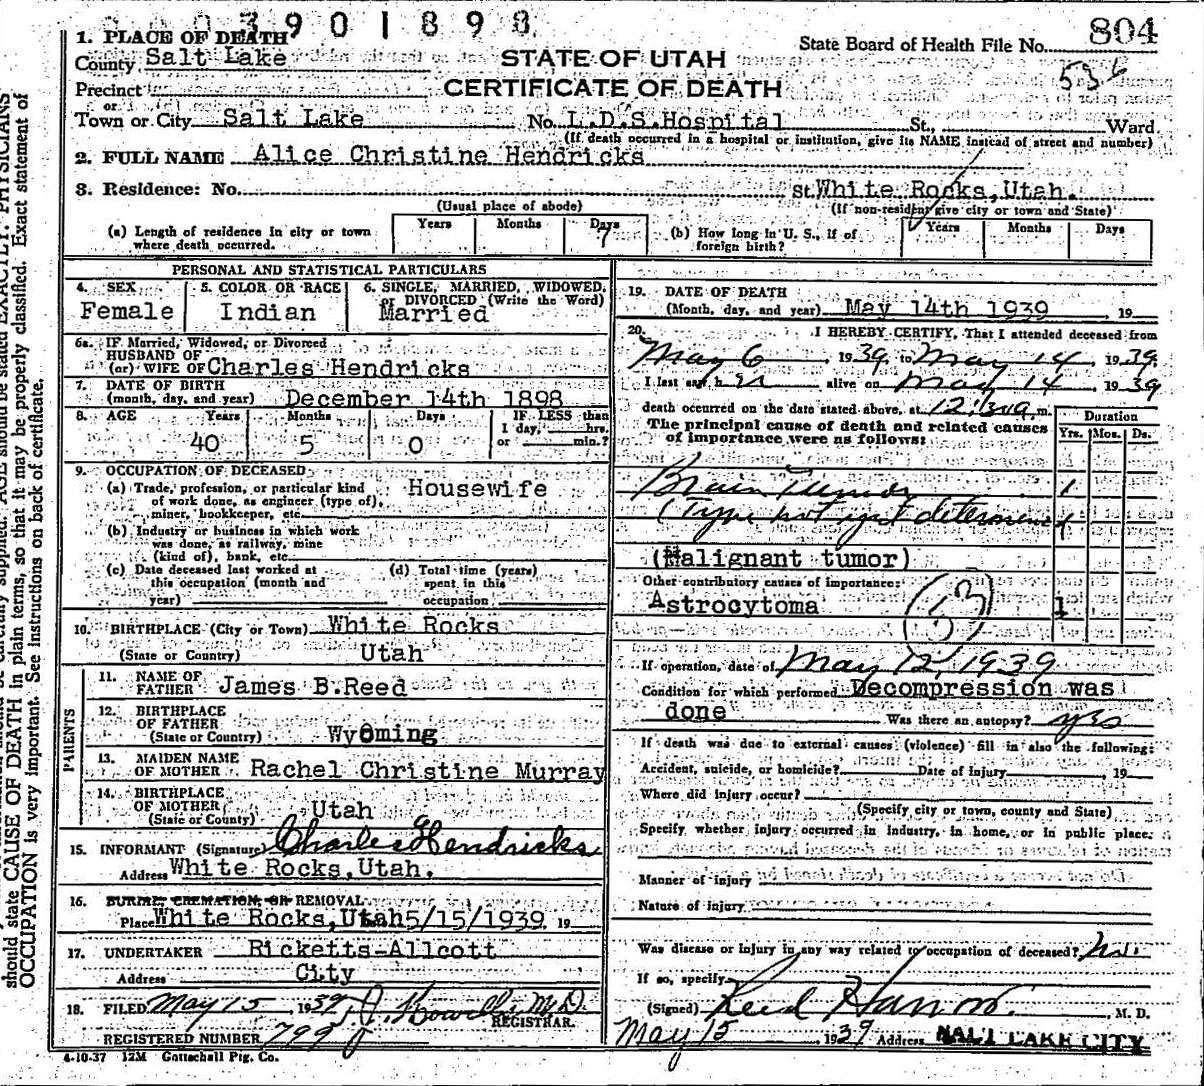 03901898
804
1. PLACE OF DEATH
State Board of Health File No.
County Salt Lake
STATE OF UTAH
CERTIFICATE OF DEATH
Precinct
or
Town or City Salt Lake No. L.D.S.Hospital St., Ward
(If death occurred in a hospital or institution, give its NAME instead of street and number)
2. FULL NAME Alice Christine Hendricks
3. Residence: No. St. White Rocks,Utah.
(Usual place of abode) (If non-resident give city or town and State)
(a) Length of residence in city or town where death occurred. Years Months Days 7
(b) How long in U. S., if of foreign birth? Years Months Days
PERSONAL AND STATISTICAL PARTICULARS
4. SEX Female
5. COLOR OR RACE Indian
6. SINGLE, MARRIED, WIDOWED, or DIVORCED (Write the Word) Married
6a. IF Married, Widowed, or Divorced
HUSBAND OF
(or) WIFE OF Charles Hendricks
7. DATE OF BIRTH
(month, day, and year) December 14th 1898
8. AGE Years 40 Months 5 Days 0
IF LESS than
1 day, hrs.
or min.?
9. OCCUPATION OF DECEASED
(a) Trade, profession, or particular kind Housewife
of work done, as engineer (type of),
miner, bookkeeper, etc.
(b) Industry or business in which work
was done, as railway, mine
(kind of), bank, etc.
(c) Date deceased last worked at
this occupation (month and
year)
(d) Total time (years)
spent in this
occupation
10. BIRTHPLACE (City or Town) White Rocks
(State or Country) Utah
PARENTS
11. NAME OF
FATHER James B.Reed
12. BIRTHPLACE
OF FATHER
(State or Country) Wyoming
13. MAIDEN NAME
OF MOTHER Rachel Christine Murray
14. BIRTHPLACE
OF MOTHER
(State or County) Utah
15. INFORMANT (Signature) Charles Hendricks
Address White Rocks,Utah.
16. BURIAL, CREMATION, OR REMOVAL
Place White Rocks,Utah 5/15/1939. 19
17. UNDERTAKER Ricketts-Allcott
Address City
18. FILED May 15 1939
REGISTRAR.
REGISTERED NUMBER 799
4-10-37 12M Gottschall Ptg. Co.
19. DATE OF DEATH
(Month, day, and year) May 14th 1939 19
20. I HEREBY CERTIFY, That I attended deceased from
May 6, 1939, to May 14, 1939.
I last saw her alive on May 14, 1939
death occurred on the date stated above, at m.
The principal cause of death and related causes
of importance were as follows:
Duration
Yrs. Mos. Ds.
Brain Tumor 1
(Type not yet determined
(Malignant tumor)
Other contributory causes of importance:
Astrocytoma 1
53
If operation, date of May 12, 1939
Condition for which performed Decompression was
done Was there an autopsy? yes
If death was due to external causes (violence) fill in also the following:
Accident, suicide, or homicide? Date of injury , 19
Where did injury occur?
(Specify city or town, county and State)
Specify whether injury occurred in industry, in home, or in public place.
Manner of injury
Nature of injury
Was disease or injury in any way related to occupation of deceased? No
If so, specify
(Signed) Reed Harrow. , M. D.
May 15 1939 Address SALT LAKE CITY
should state CAUSE OF DEATH in plain terms, so that it may be properly classified. Exact statement of
OCCUPATION is very important. See instructions on back of certificate.